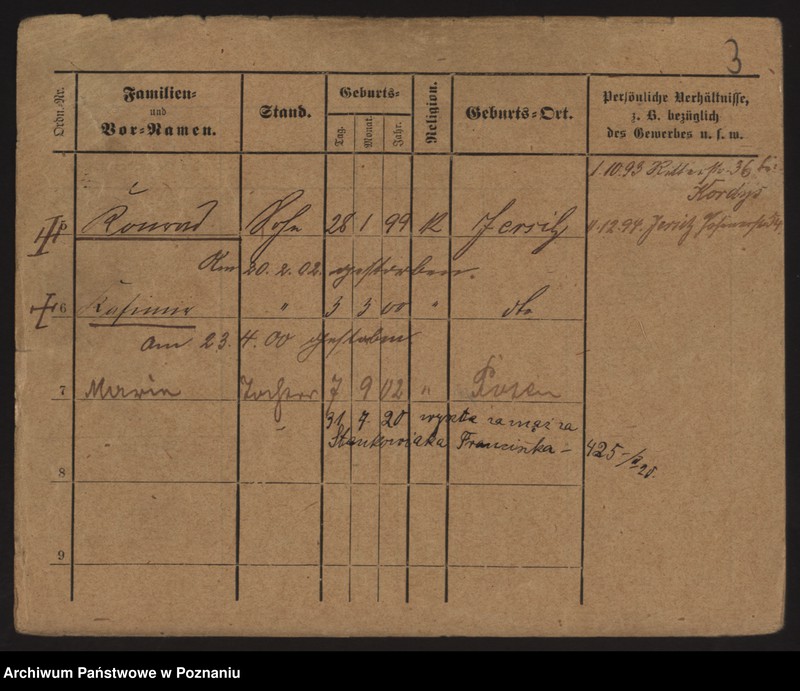 3
Ordn.-Nr.
Familien-
und
Vor-Namen.
Stand.
Geburts-
Tag.
Monat.
Jahr.
Religion.
Geburts-Ort.
Persönliche Verhältnisse,
z. B. bezüglich
des Gewerbes u. s. w.
1.10.93 Ritterstr. 36 bei
Kordys
Konrad Sohn 28 1 99 K Jersitz 11.12.94. Jersitz
Am 20.2.02. gestorben.
6 Kasimir " 3 3 00 " dto
Am 23.4.00 gestorben
7 Maria Tochter 7 9 02 " Posen
31 7 20 wyszła za mąż za
Stankowiaka Franciszka - 425
8
9
Archiwum Państwowe w Poznaniu